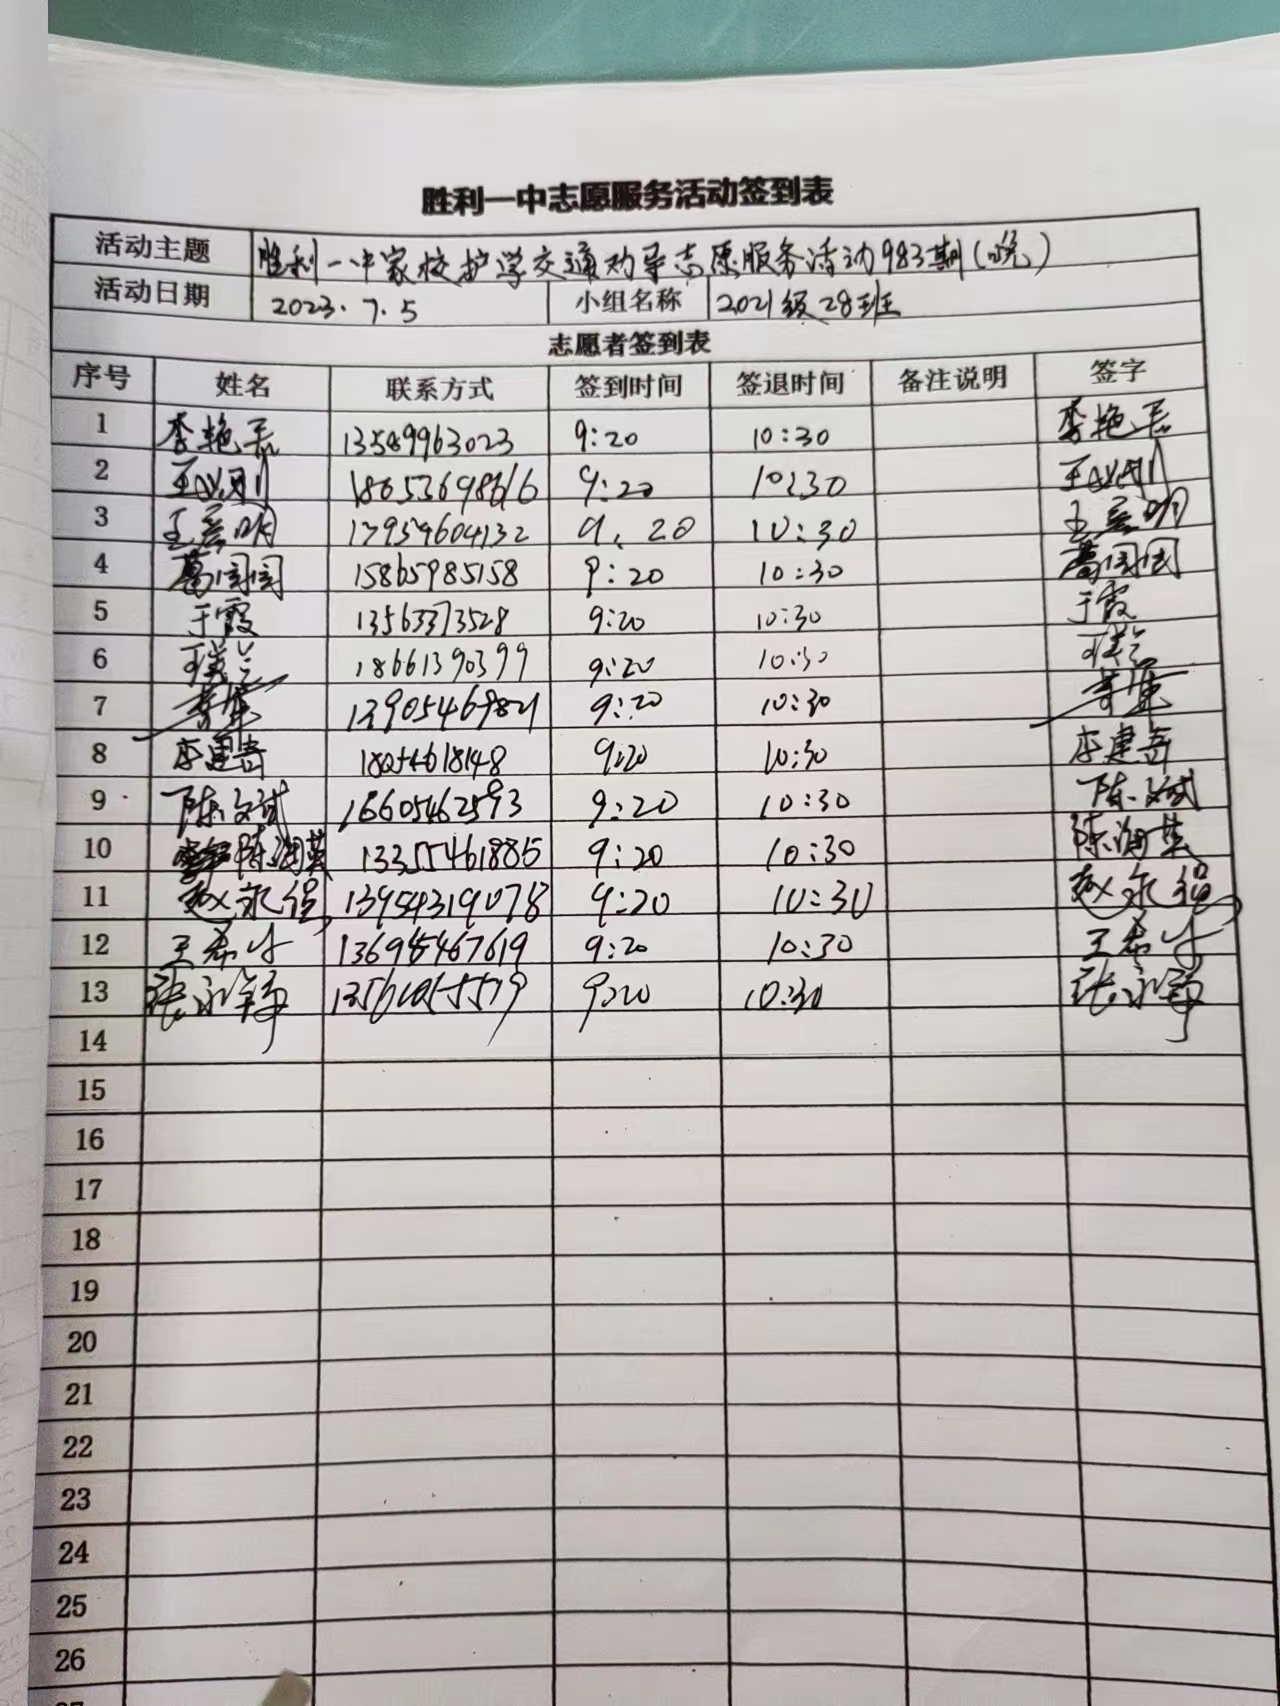 胜利一中志愿服务活动签到表
活动主题 胜利一中家校护学交通劝导志愿服务活动983期(晚)
活动日期 2023.7.5 小组名称 2021级28班
志愿者签到表
序号 姓名 联系方式 签到时间 签退时间 备注说明 签字
1 李艳 13589963023 9:20 10:30 李艳
2 王 18653698616 9:20 10:30 王
3 王 17954604132 9.20 10:30 王
4 葛闰闰 15865985158 9:20 10:30 葛闰闰
5 于霞 13563373528 9:20 10:30 于霞
6 18661390399 9:20 10:30
7 13905469821 9:20 10:30
8 李建奇 18054618148 9:20 10:30 李建奇
9 陈文斌 16605462593 9:20 10:30 陈文斌
10 陈海英 13355461885 9:20 10:30 陈海英
11 赵永强 9:20 10:30 赵永强
12 王希 9:20 10:30 王希
13 张永 9:20 10:30 张永
14
15
16
17
18
19
20
21
22
23
24
25
26